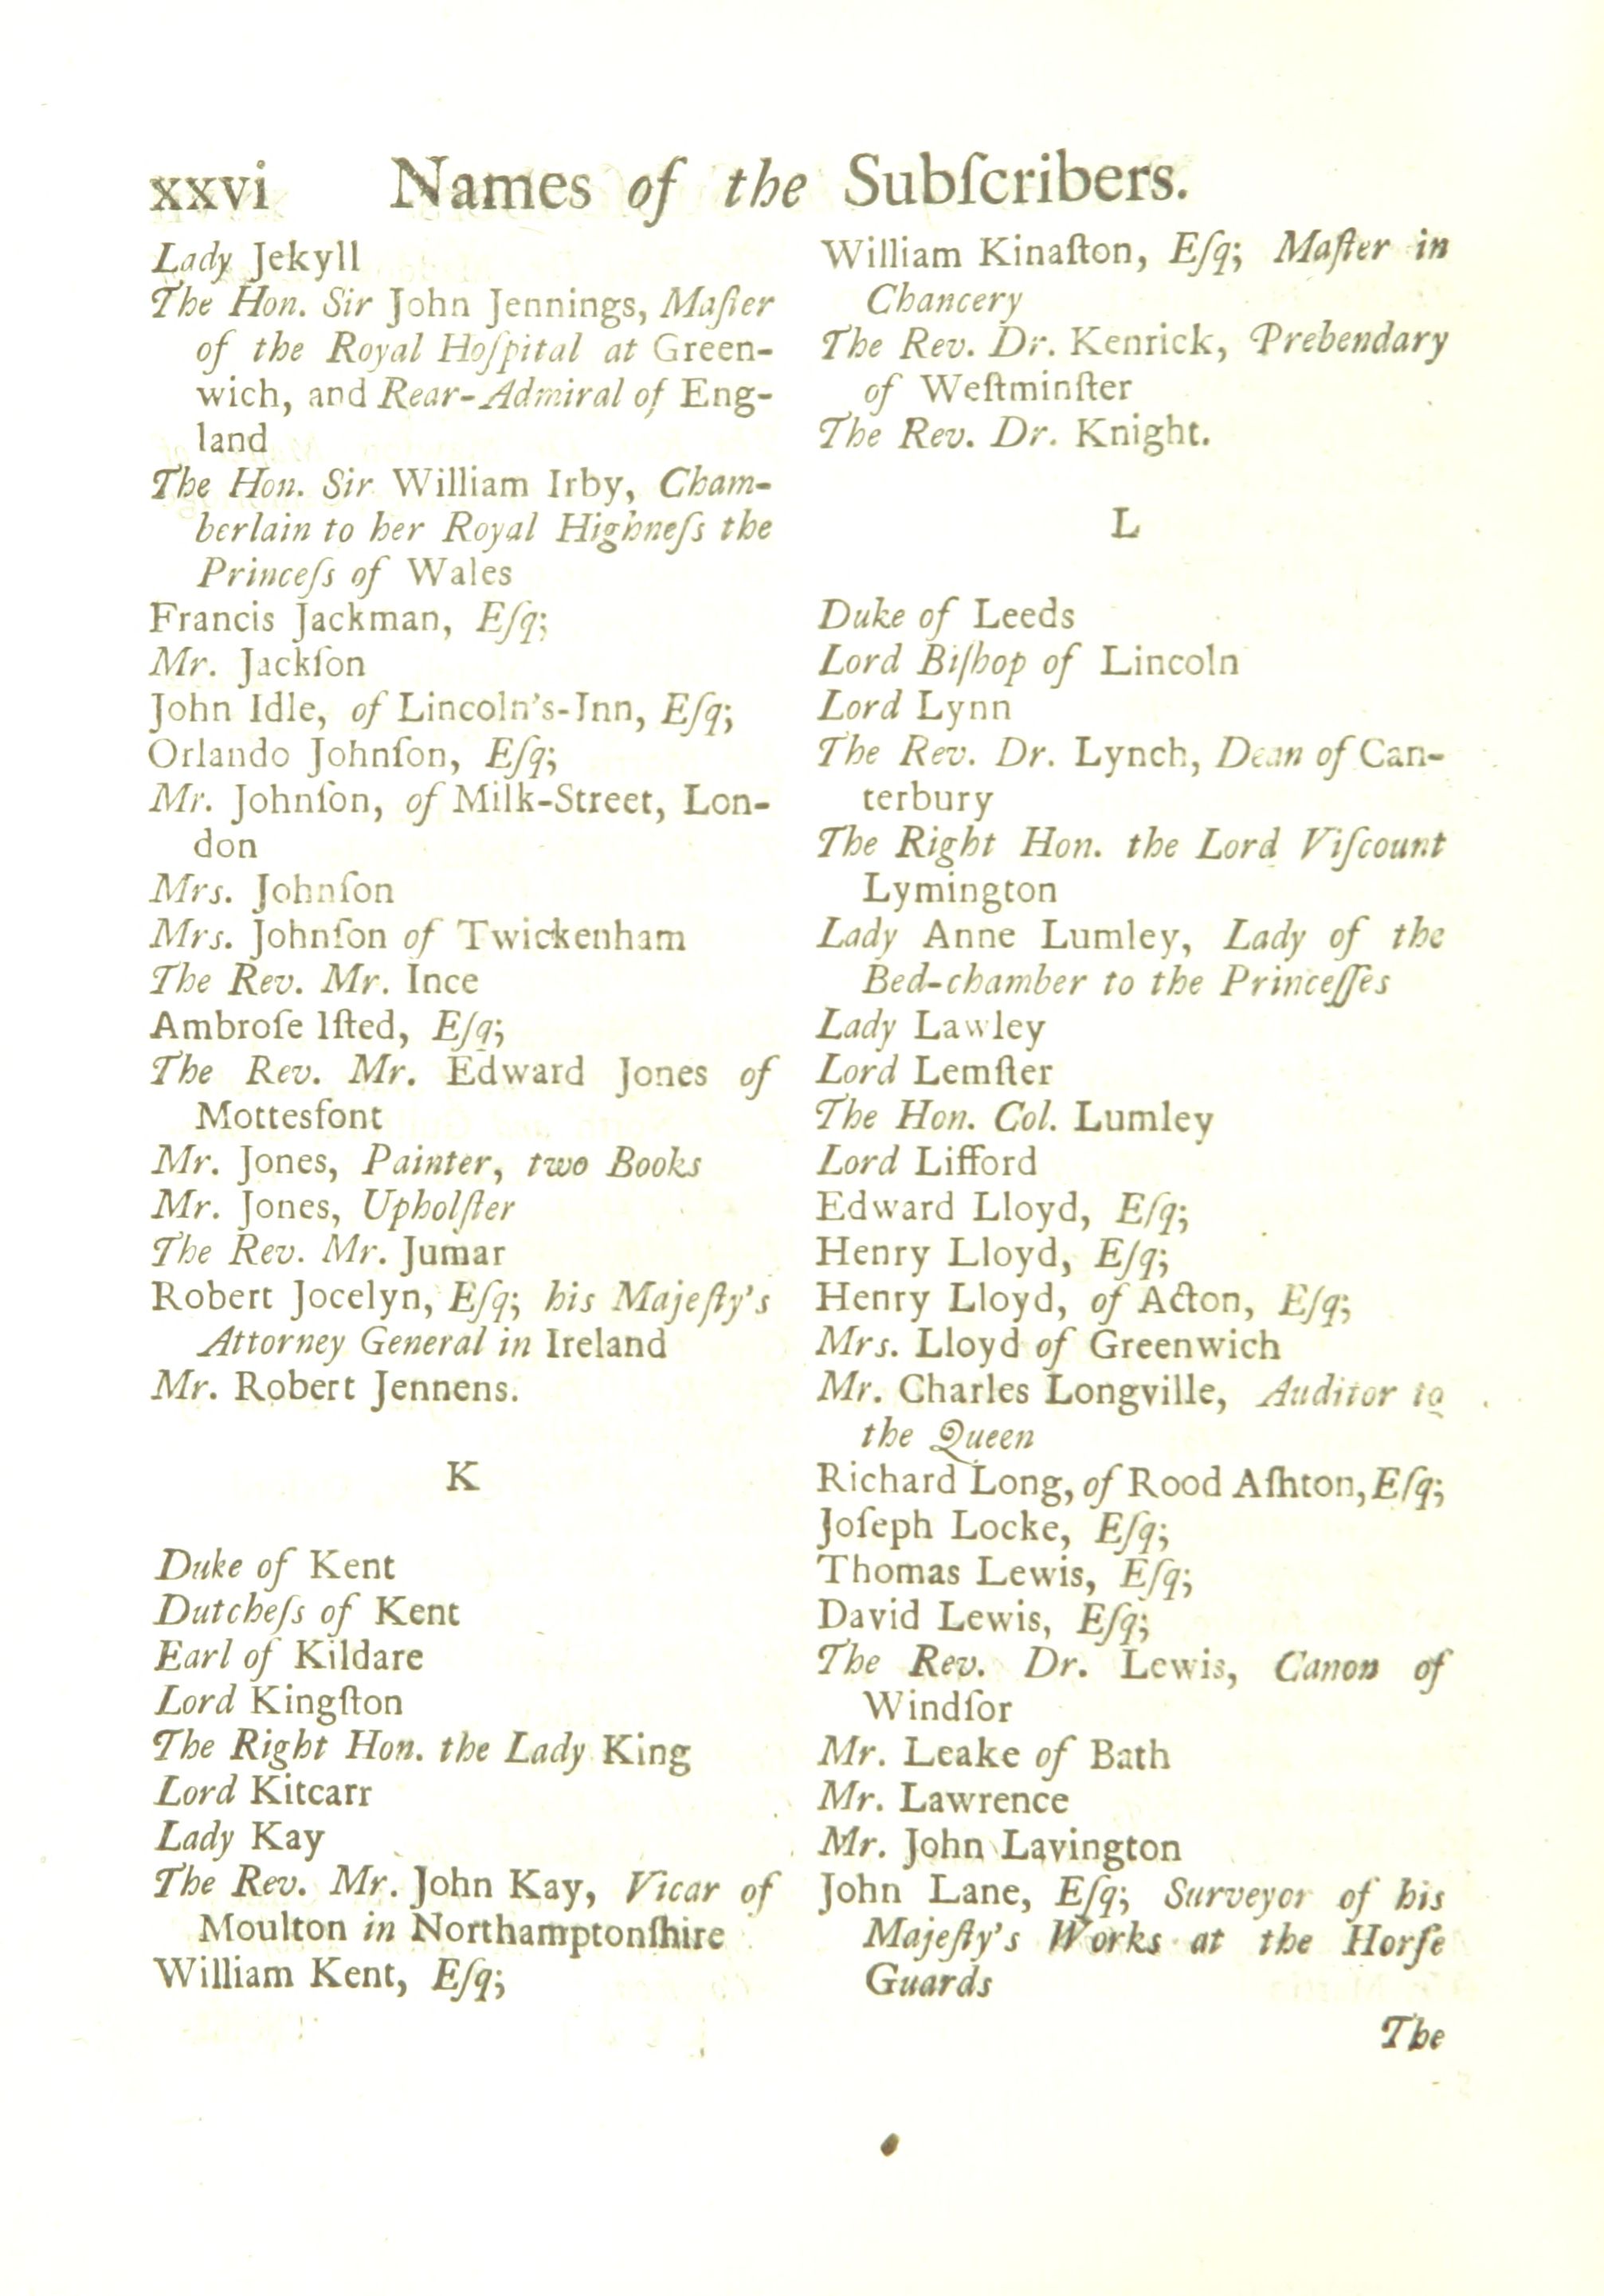 xxvi Names of the Subſcribers.
Lady Jekyll
The Hon. Sir John Jennings, Maſter
of the Royal Hoſpital at Green-
wich, and Rear-Admiral of Eng-
land
The Hon. Sir William Irby, Cham-
berlain to her Royal Highneſs the
Princeſs of Wales
Francis Jackman, Eſq;
Mr. Jackſon
John Idle, of Lincoln's-Inn, Eſq;
Orlando Johnſon, Eſq;
Mr. Johnſon, of Milk-Street, Lon-
don
Mrs. Johnſon
Mrs. Johnſon of Twickenham
The Rev. Mr. Ince
Ambroſe Iſted, Eſq;
The Rev. Mr. Edward Jones of
Mottesfont
Mr. Jones, Painter, two Books
Mr. Jones, Upholſter
The Rev. Mr. Jumar
Robert Jocelyn, Eſq; his Majeſty's
Attorney General in Ireland
Mr. Robert Jennens.
K
Duke of Kent
Dutcheſs of Kent
Earl of Kildare
Lord Kingſton
The Right Hon. the Lady King
Lord Kitcarr
Lady Kay
The Rev. Mr. John Kay, Vicar of
Moulton in Northamptonſhire
William Kent, Eſq;
William Kinaſton, Eſq; Maſter in
Chancery
The Rev. Dr. Kenrick, Prebendary
of Weſtminſter
The Rev. Dr. Knight.
L
Duke of Leeds
Lord Biſhop of Lincoln
Lord Lynn
The Rev. Dr. Lynch, Dean of Can-
terbury
The Right Hon. the Lord Viſcount
Lymington
Lady Anne Lumley, Lady of the
Bed-chamber to the Princeſſes
Lady Lawley
Lord Lemſter
The Hon. Col. Lumley
Lord Lifford
Edward Lloyd, Eſq;
Henry Lloyd, Eſq;
Henry Lloyd, of Acton, Eſq;
Mrs. Lloyd of Greenwich
Mr. Charles Longville, Auditor to
the Queen
Richard Long, of Rood Aſhton, Eſq;
Joſeph Locke, Eſq;
Thomas Lewis, Eſq;
David Lewis, Eſq;
The Rev. Dr. Lewis, Canon of
Windſor
Mr. Leake of Bath
Mr. Lawrence
Mr. John Lavington
John Lane, Eſq; Surveyor of his
Majeſty's Works at the Horſe
Guards
The